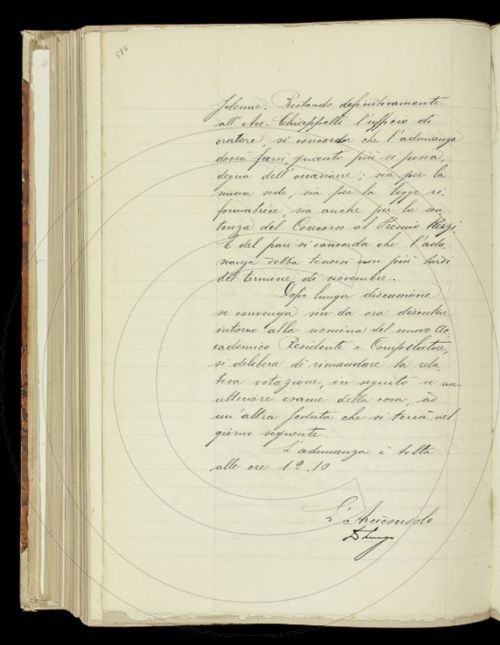 solenne. Restando definitivamente
all'Acc. Chiappelli l'ufficio di
oratore, si concorda che l'adunanza
dovrà farsi, quanto più si possa,
degna dell'occasione; sia per la
nuova sede, sia per la legge ri-
formatrice, sia anche per la sen
tenza del Concorso al Premio Rezzi.
E del pari si concorda che l'adu
nanza debba tenersi non più tardi
del termine di novembre.
Dopo lunga discussione
se convenga sin da ora discutere
intorno alla nomina del nuovo Ac
cademico Residente e Compilatore,
si delibera di rimandare la rela
tiva votazione, in seguito a un
ulteriore esame della cosa, ad
un'altra seduta che si terrà nel
giorno seguente.
L'adunanza è tolta
alle ore 12.10
L'Arciconsolo